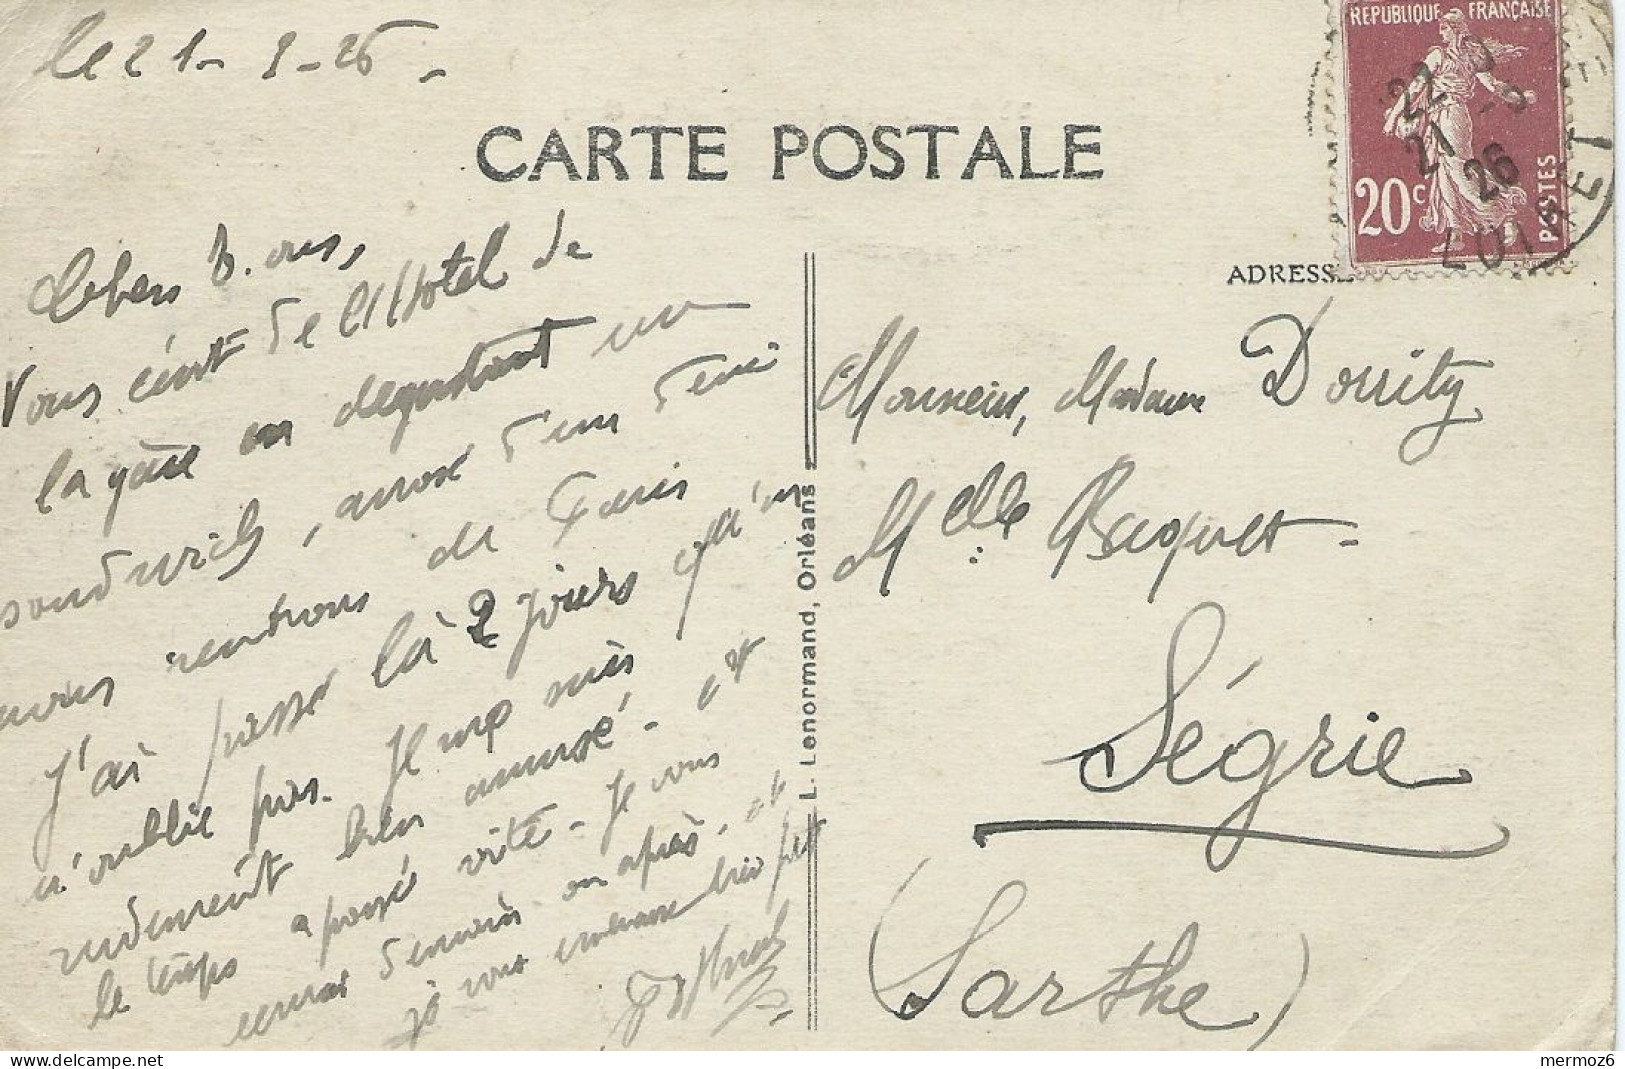 le 21-8-26-
CARTE POSTALE
REPUBLIQUE FRANÇAISE
20c
POSTES
22
21 -8
26
LOIRET
ADRESSE
Chers B. ous,
Vous écrit de l'Hotel de
la gare en degustant un
sandwich, arrosé d'un demi
nous rentrons de Paris
J'ai passé là 2 jours qu'on
n'oublie pas. Je me suis
rudement bien amusé - et
le temps a passé vite - Je vous
verrai demain ou après, et
je vous embrasse bien fort
L. Lenormand, Orléans
Monsieur, Madame Dorrity
Melle Bacquet -
Ségrie
(Sarthe)
mermoz26